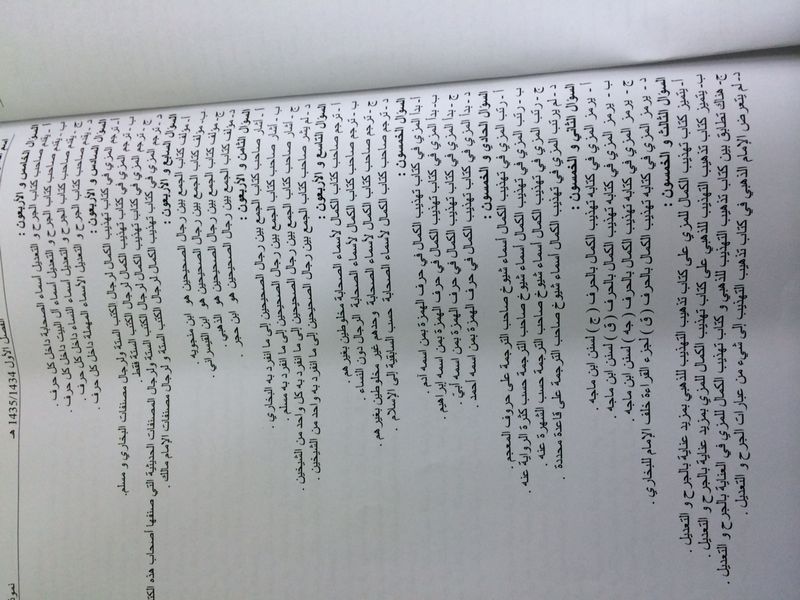 الفصل الأول 1435/1434 هـ
السؤال الخامس و الأربعون :
أ ـ يقدم صاحب كتاب الجرح و التعديل أسماء الصحابة داخل كل حرف .
ب ـ يقدم صاحب كتاب الجرح و التعديل أسماء آل البيت داخل كل حرف .
ج ـ يقدم صاحب كتاب الجرح و التعديل أسماء النساء داخل كل حرف .
د ـ يقدم صاحب كتاب الجرح و التعديل الأسماء المهملة داخل كل حرف .
السؤال السادس و الأربعون :
أ ـ ترجم المزي في كتاب تهذيب الكمال لرجال الكتب الستة ولرجال مصنفات البخاري و مسلم .
ب ـ ترجم المزي في كتاب تهذيب الكمال لرجال الكتب الستة فقط .
ج ـ ترجم المزي في كتاب تهذيب الكمال لرجال الكتب الستة ولرجال المصنفات الحديثية التي صنفها أصحاب هذه
د ـ ترجم المزي في كتاب تهذيب الكمال لرجال الكتب الستة و لرجال مصنفات الإمام مالك .
السؤال السابع و الأربعون :
أ ـ مؤلف كتاب الجمع بين رجال الصحيحين هو ابن منجويه
ب ـ مؤلف كتاب الجمع بين رجال الصحيحين هو ابن القيسراني
ج ـ مؤلف كتاب الجمع بين رجال الصحيحين هو الذهبي .
د ـ مؤلف كتاب الجمع بين رجال الصحيحين هو ابن حجر .
السؤال الثامن و الأربعون :
أ ـ أشار صاحب كتاب الجمع بين رجال الصحيحين إلى ما انفرد به البخاري .
ب ـ أشار صاحب كتاب الجمع بين رجال الصحيحين إلى ما انفرد به مسلم .
ج ـ أشار صاحب كتاب الجمع بين رجال الصحيحين إلى ما انفرد به كل واحد من الشيخين .
د ـ لم يشر صاحب كتاب الجمع بين رجال الصحيحين إلى ما انفرد به واحد من الشيخين .
السؤال التاسع و الأربعون :
أ ـ ترجم صاحب كتاب الكمال لأسماء الصحابة مخلوطين بغيرهم .
ب ـ ترجم صاحب كتاب الكمال لأسماء الصحابة الرجال دون النساء .
ج ـ ترجم صاحب كتاب الكمال لأسماء الصحابة وحدهم غير مخلوطين بغيرهم .
د ـ ترجم صاحب كتاب الكمال لأسماء الصحابة حسب السابقية إلى الإسلام
السؤال الخمسون :
أ ـ بدأ المزي في كتاب تهذيب الكمال في حرف الهمزة بمن اسمه آدم .
ب ـ بدأ المزي في كتاب تهذيب الكمال في حرف الهمزة بمن اسمه إبراهيم .
ج ـ بدأ المزي في كتاب تهذيب الكمال في حرف الهمزة بمن اسمه أبي .
د ـ بدأ المزي في كتاب تهذيب الكمال في حرف الهمزة بمن اسمه أحمد .
السؤال الحادي و الخمسون :
أ ـ رتب المزي في تهذيب الكمال أسماء شيوخ صاحب الترجمة على حروف المعجم .
ب ـ رتب المزي في تهذيب الكمال أسماء شيوخ صاحب الترجمة حسب كثرة الرواية عنه .
ج ـ رتب المزي في تهذيب الكمال أسماء شيوخ صاحب الترجمة حسب الشهرة عنه .
د ـ لم يرتب المزي في تهذيب الكمال أسماء شيوخ صاحب الترجمة على قاعدة محددة .
السؤال الثاني و الخمسون :
أ ـ يرمز المزي في كتابه تهذيب الكمال بالحرف ( ج ) لسنن ابن ماجه .
ب ـ يرمز المزي في كتابه تهذيب الكمال بالحرف ( ق ) لسنن ابن ماجه
ج ـ يرمز المزي في كتابه تهذيب الكمال بالحرف ( جه ) لسنن ابن ماجه .
د ـ يرمز المزي في كتابه تهذيب الكمال بالحرف ( ق ) لجزء القراءة خلف الإمام للبخاري .
السؤال الثالث و الخمسون :
أ ـ يتميز كتاب تهذيب الكمال للمزي على كتاب تذهيب التهذيب للذهبي بمزيد عناية بالجرح و التعديل .
ب ـ يتميز كتاب تذهيب التهذيب للذهبي على كتاب تهذيب الكمال للمزي بمزيد عناية بالجرح و التعديل .
ج ـ هناك تطابق بين كتاب تذهيب التهذيب للذهبي و كتاب تهذيب الكمال للمزي في العناية بالجرح و التعديل .
د ـ لم يتعرض الإمام الذهبي في كتاب تذهيب التهذيب إلى شيء من عبارات الجرح و التعديل .